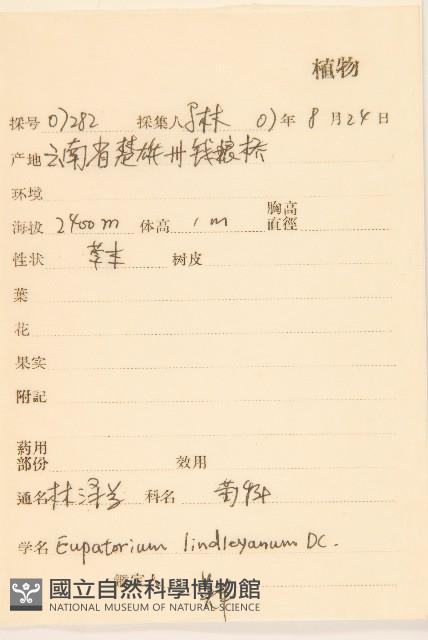 植物
採号 07282 採集人 林 07年 8月24日
产地 云南省楚雄州钱粮桥
环境
海拔 2400m 体高 1m 胸高直徑
性状 草本 树皮
葉
花
果实
附記
药用部份 效用
通名 林泽兰 科名 菊科
学名 Eupatorium lindleyanum DC.
鑑定人
國立自然科學博物館
NATIONAL MUSEUM OF NATURAL SCIENCE